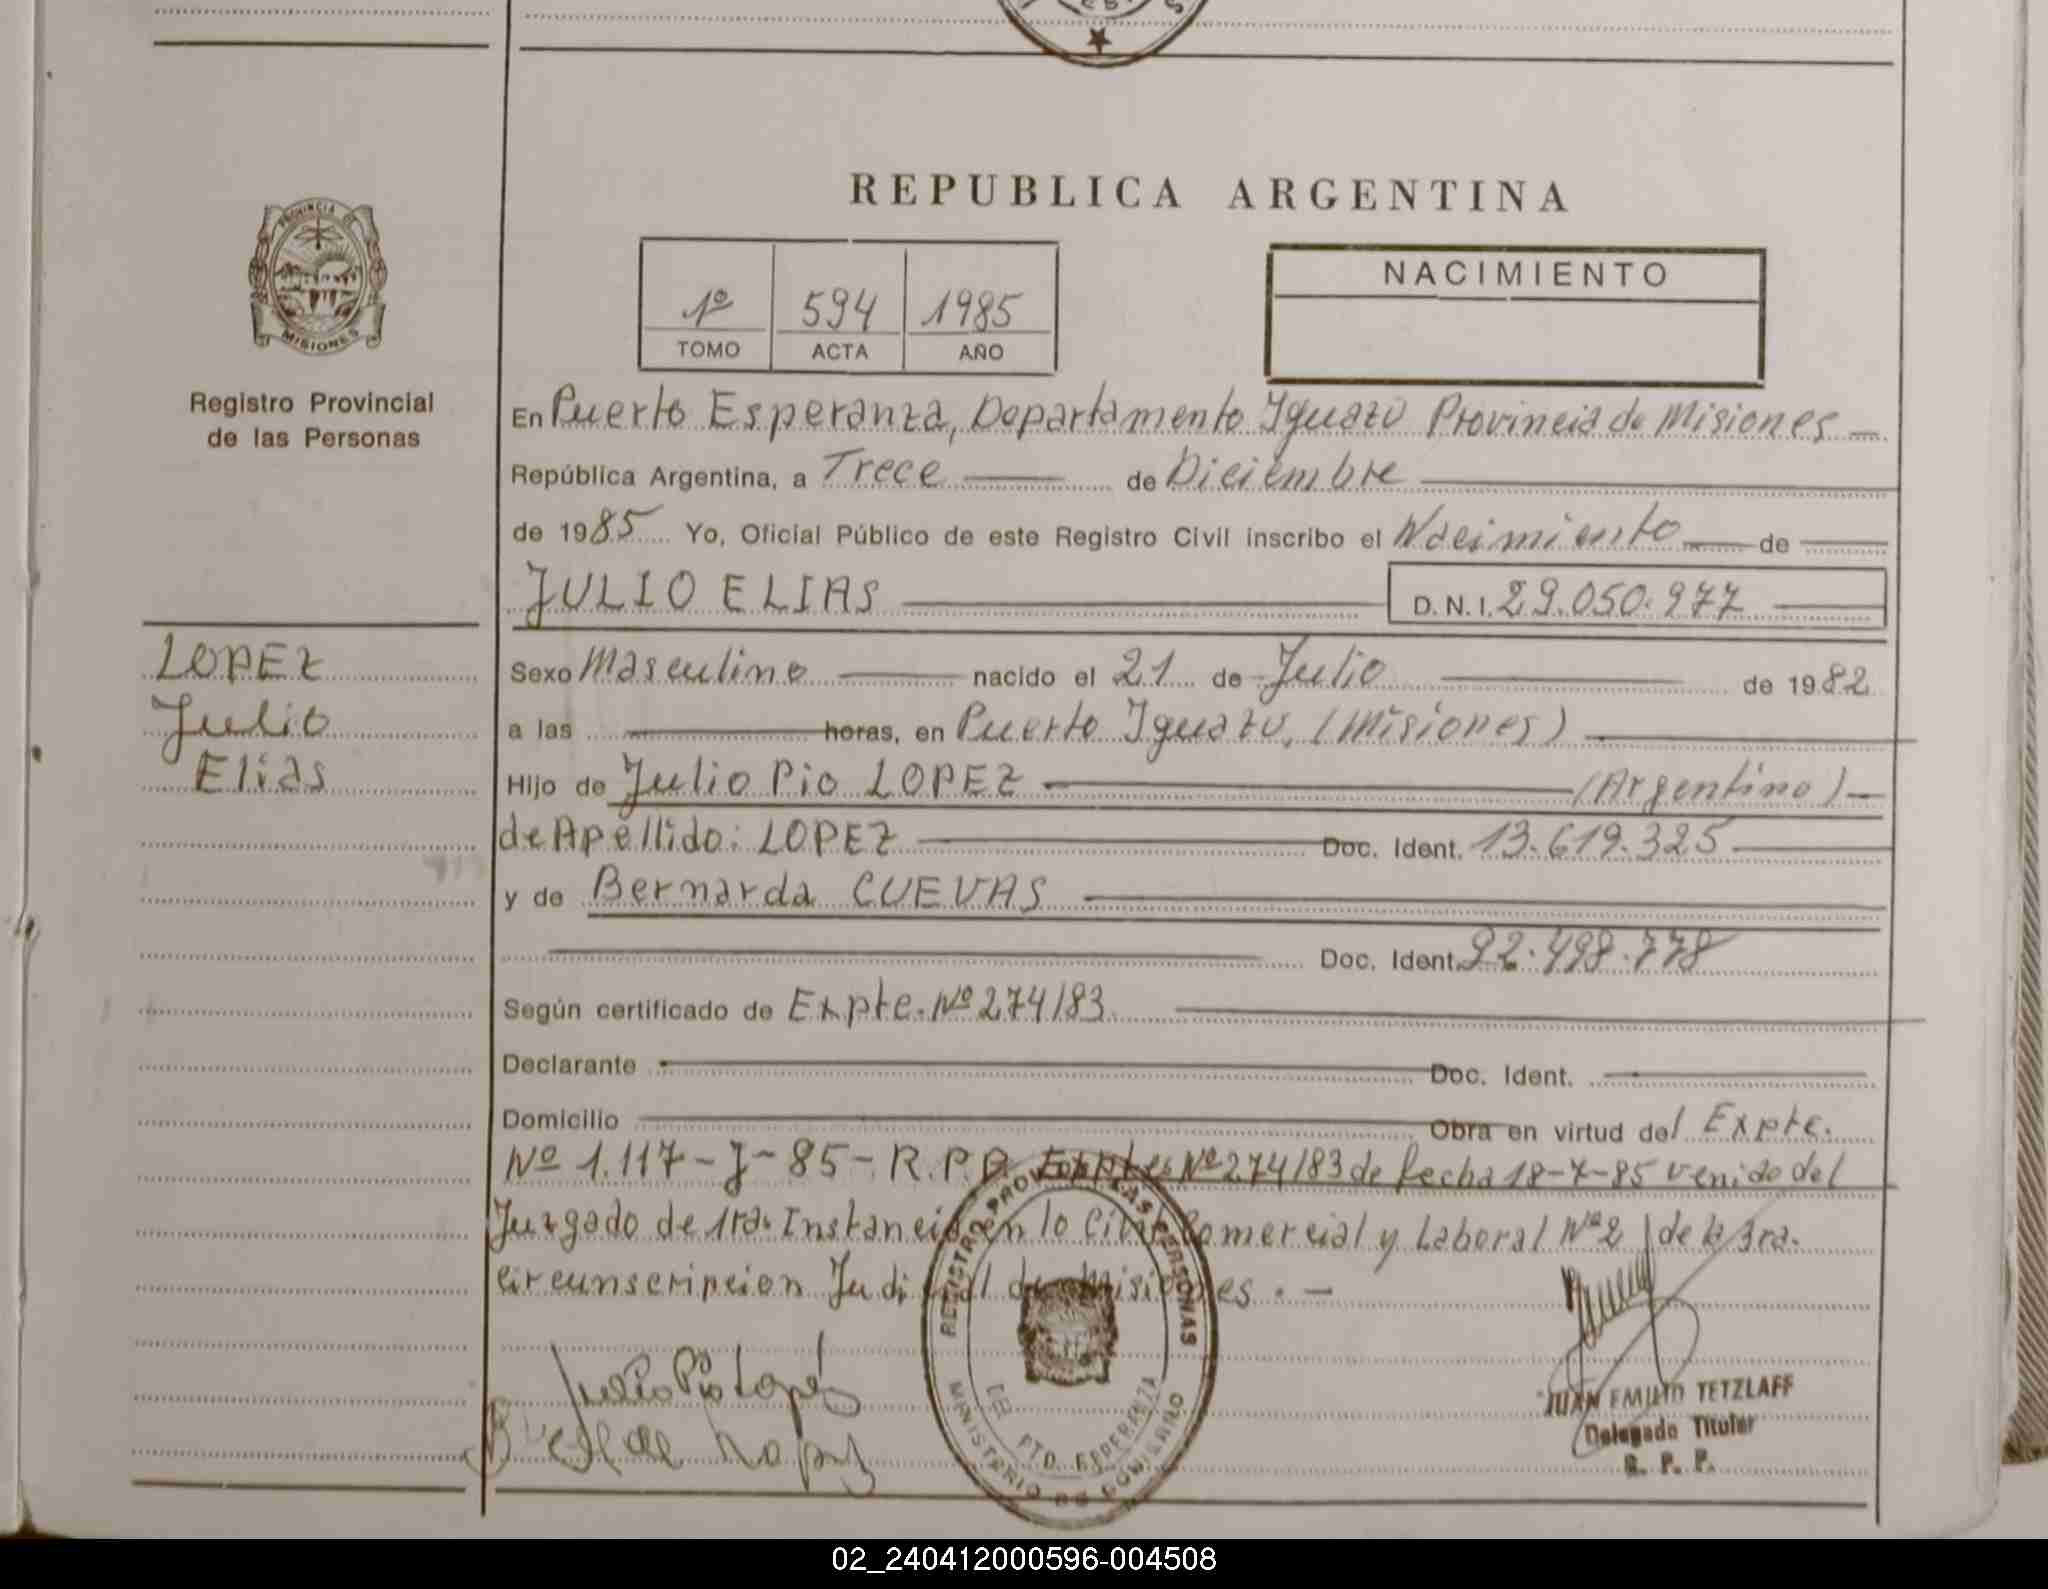 REPUBLICA ARGENTINA
PROVINCIA DE
MISIONES
Registro Provincial
de las Personas
1º 594 1985
TOMO ACTA AÑO
NACIMIENTO
En Puerto Esperanza, Departamento Iguazú Provincia de Misiones —
República Argentina, a Trece — de Diciembre
de 1985 Yo, Oficial Público de este Registro Civil inscribo el Nacimiento — de
JULIO ELIAS — D.N.I. 29.050.977 —
LOPEZ
Julio
Elias
Sexo Masculino — nacido el 21 de Julio — de 1982
a las — horas, en Puerto Iguazú, (Misiones) —
Hijo de Julio Pio LOPEZ — (Argentino) —
de Apellido: LOPEZ — Doc. Ident. 13.619.325 —
y de Bernarda CUEVAS —
Doc. Ident. 92.498.778
Según certificado de Expte. Nº 274/83 —
Declarante — Doc. Ident. —
Domicilio — Obra en virtud del Expte.
Nº 1.117-J-85-R.P.P. Nº 274/83 de fecha 18-7-85 venido del
Juzgado de 1ra. Instancia en lo Civil Comercial y Laboral Nº 2 de la 3ra.
circunscripcion Judicial de Misiones. —
Julio Pio Lopez
REGISTRO PROV. LAS PERSONAS
PTO. ESPERANZA
MINISTERIO DE GOBIERNO
JUAN EMILIO TETZLAFF
Delegado Titular
R. P. P.
02_240412000596-004508